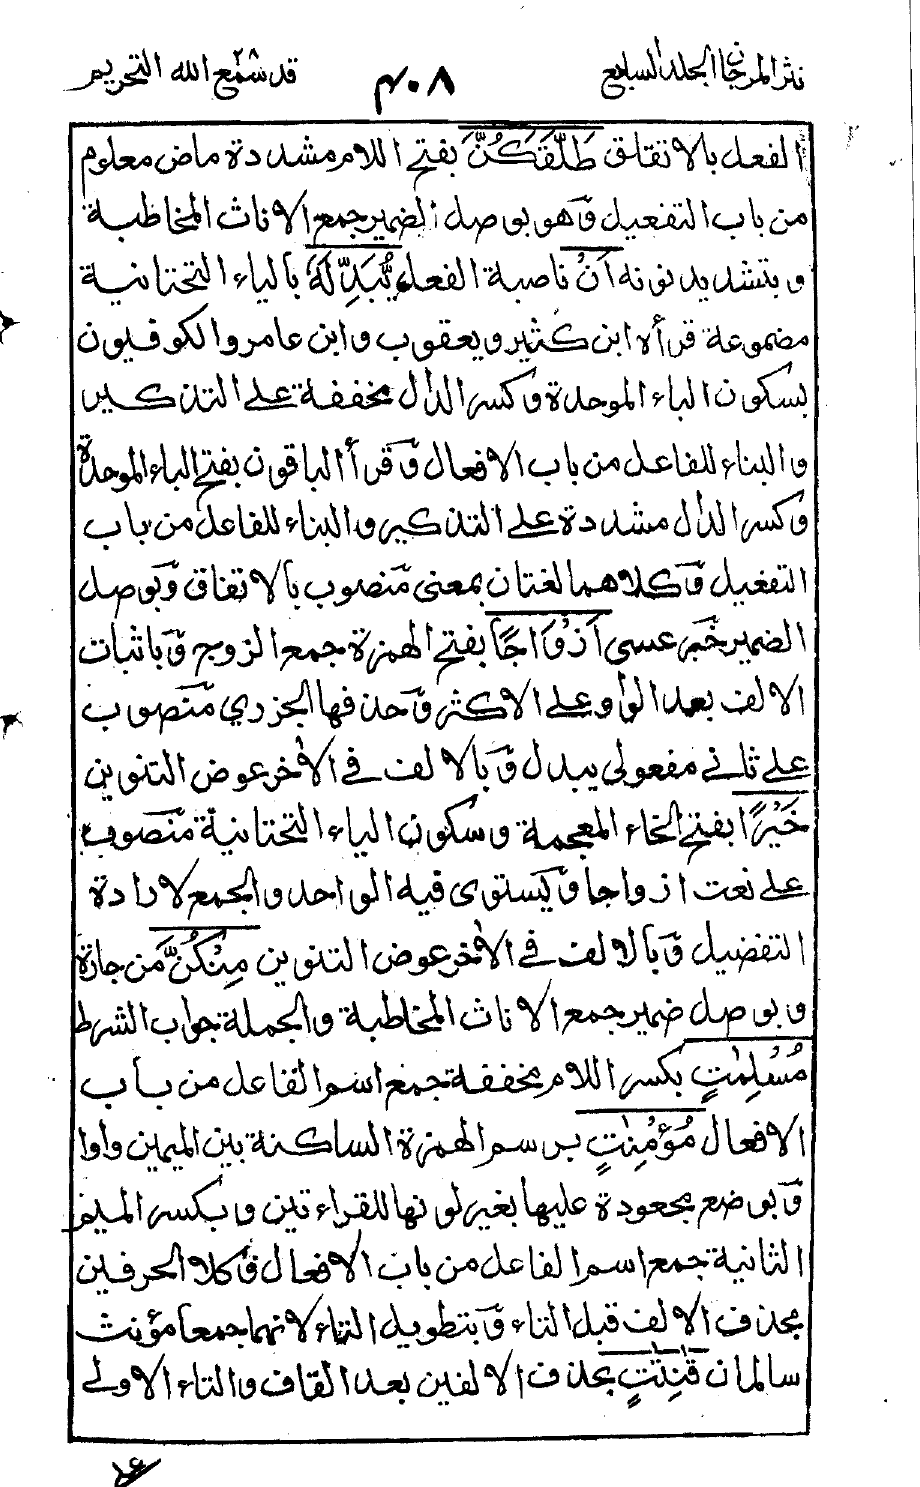 نثر المرجان الجلد السابع
٤٠٨
قد سمع الله ٢٨ التحريم
الفعل بالاتفاق طَلَّقَكُنَّ بفتح اللام مشددة ماض معلوم
من باب التفعيل وهو بوصل الضمير جمع الاناث المخاطبة
وبتشديد نونه اَنْ ناصبة الفعل يُّبْدِلَهٗ بالياء التحتانية
مضمومة قرأ ابن كثير ويعقوب وابن عامر والكوفيون
بسكون الباء الموحدة وكسر الدال مخففة على التذكير
والبناء للفاعل من باب الافعال وقرأ الباقون بفتح الباء الموحدة
وكسر الدال مشددة على التذكير والبناء للفاعل من باب
التفعيل وكلاهما لغتان بمعنى منصوب بالاتفاق وبوصل
الضمير خبر عسى اَزْوَاجًا بفتح الهمزة جمع الزوج وباثبات
الالف بعد الواو على الاكثر وحذفها الجزري منصوب
على ثاني مفعولي يبدل وبالالف في الأخر عوض التنوين
خَيْرًا بفتح الخاء المعجمة وسكون الياء التحتانية منصوب
على نعت ازواجا ويستوى فيه الواحد والجمع لارادة
التفضيل وبالالف في الأخر عوض التنوين مِنْكُنَّ من جارة
وبوصل ضمير جمع الاناث المخاطبة والجملة جواب الشرط
مُسْلِمٰتٍ بكسر اللام مخففة جمع اسم الفاعل من باب
الافعال مُؤْمِنٰتٍ برسم الهمزة الساكنة بين الميمين واوا
وبوضع مجعودة عليها بغير لونها للقراءتين وبكسر الميم
الثانية جمع اسم الفاعل من باب الافعال وكلا الحرفين
بحذف الالف قبل التاء وبتطويل التاء لانهما جمعا مؤنث
سالمان قٰنِتٰتٍ بحذف الالفين بعد القاف والتاء الاولى